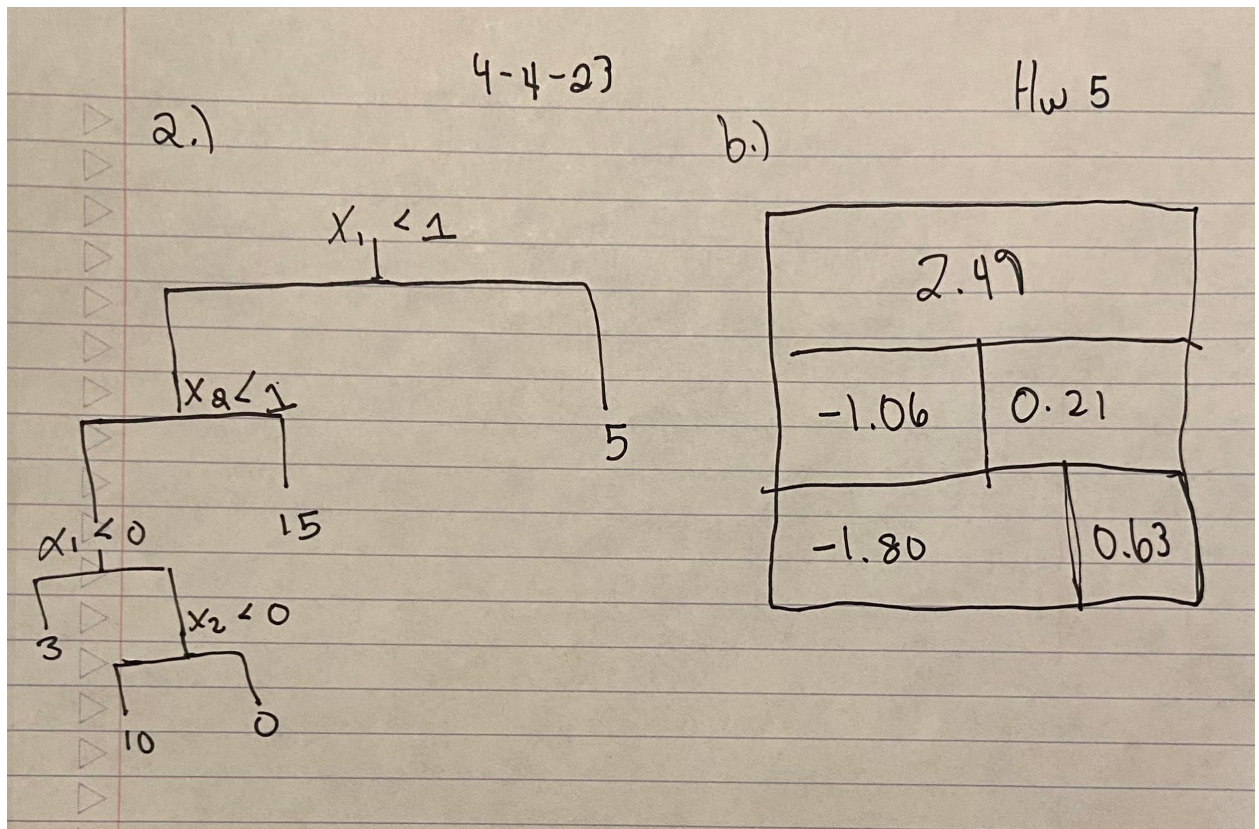 4-4-23
Hw 5
2.)
X₁ < 1
X2 < 1
5
X₁ < 0
15
3
X₂ < 0
10
0
b.)
2.49
-1.06
0.21
-1.80
0.63